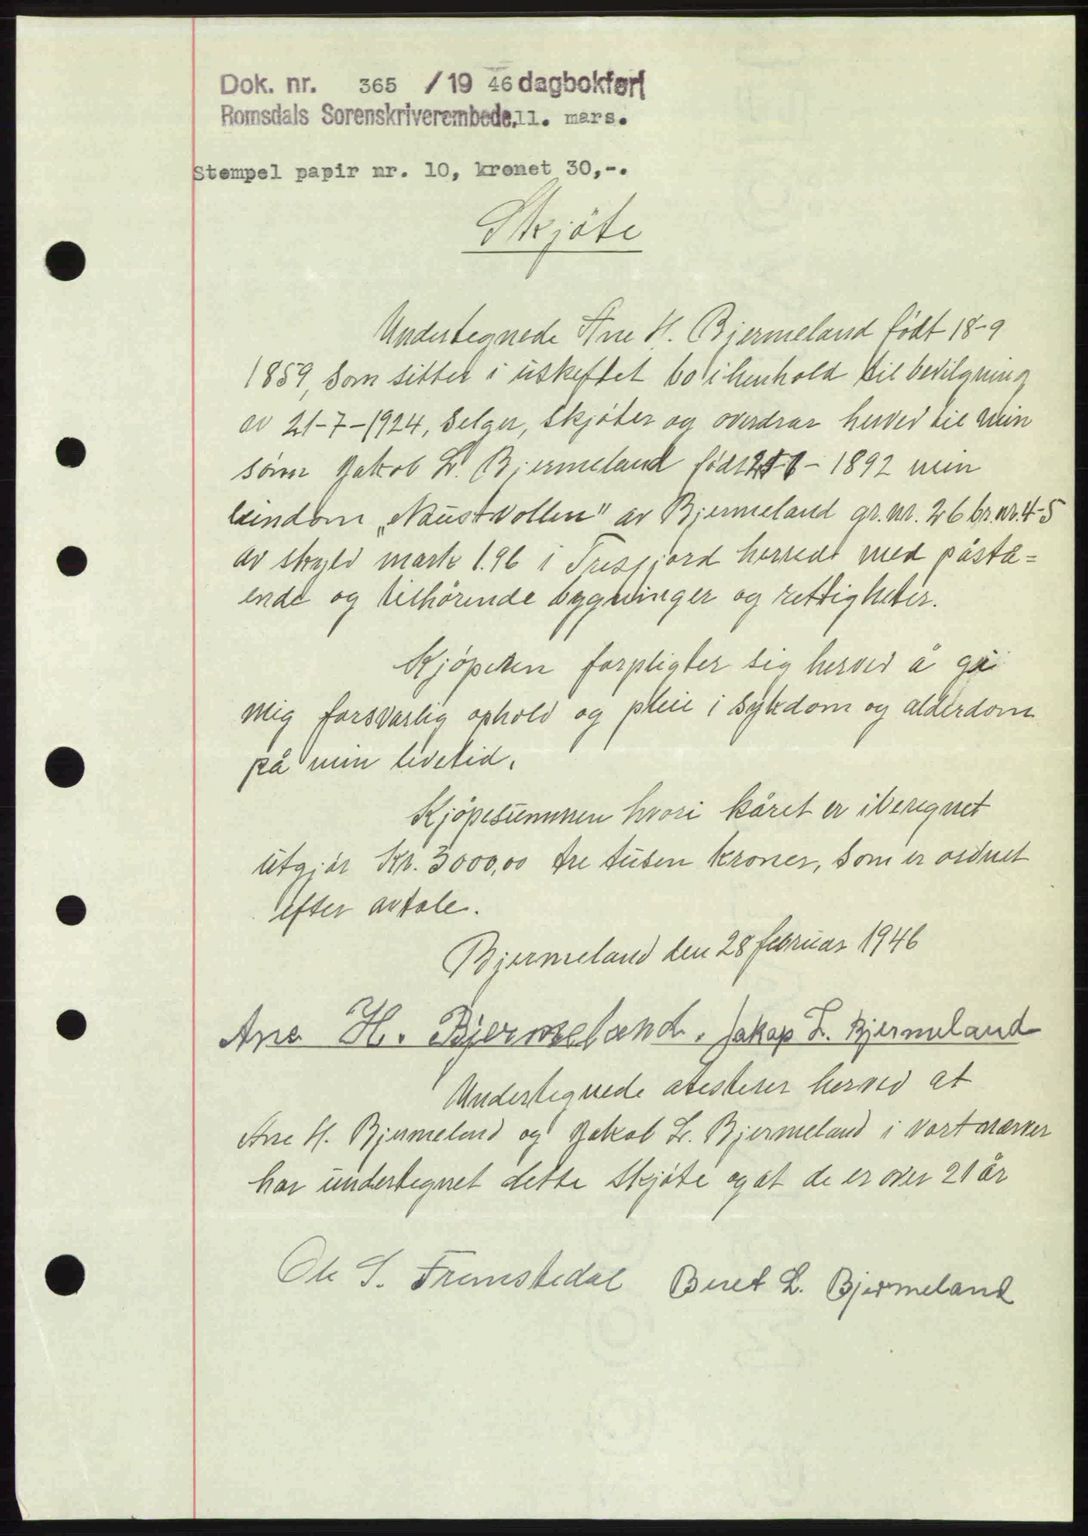 Dok. nr. 365 / 19 46 dagbokført
Romsdals Sorenskriverembede, 11. mars.
Stempel papir nr. 10, kronet 30,-.
Skjöte
Undertegnede Ane H. Bjermeland født 18-9
1859, som sitter i uskeftet bo i henhold til bevilgning
av 21-7-1924, selger, skjöter og overdrar herved til min
sönn Jakob L. Bjermeland født - 1892 min
eindom „Naustvollen" av Bjermeland gr. nr. 26 br. nr. 4-5
av skyld mark 1.96 i Tresfjord herred med påstå-
ende og tilhörende bygninger og rettigheter.
Kjöperen forpligter sig herved å gi
mig forsvarlig ophold og pleie i sykdom og alderdom
på min livstid.
Kjöpesummen hvori kåret er iberegnet
utgjör Kr. 3000,00 tre tusen kroner, som er ordnet
efter avtale.
Bjermeland den 28 februar 1946
Ane H. Bjermeland. Jakap L. Bjermeland
Undertegnede atesterer herved at
Ane H. Bjermeland og Jakob L. Bjermeland i vort nærver
har undertegnet dette skjöte og at de er over 21 år
Ole S. Fremstedal Beret L. Bjermeland